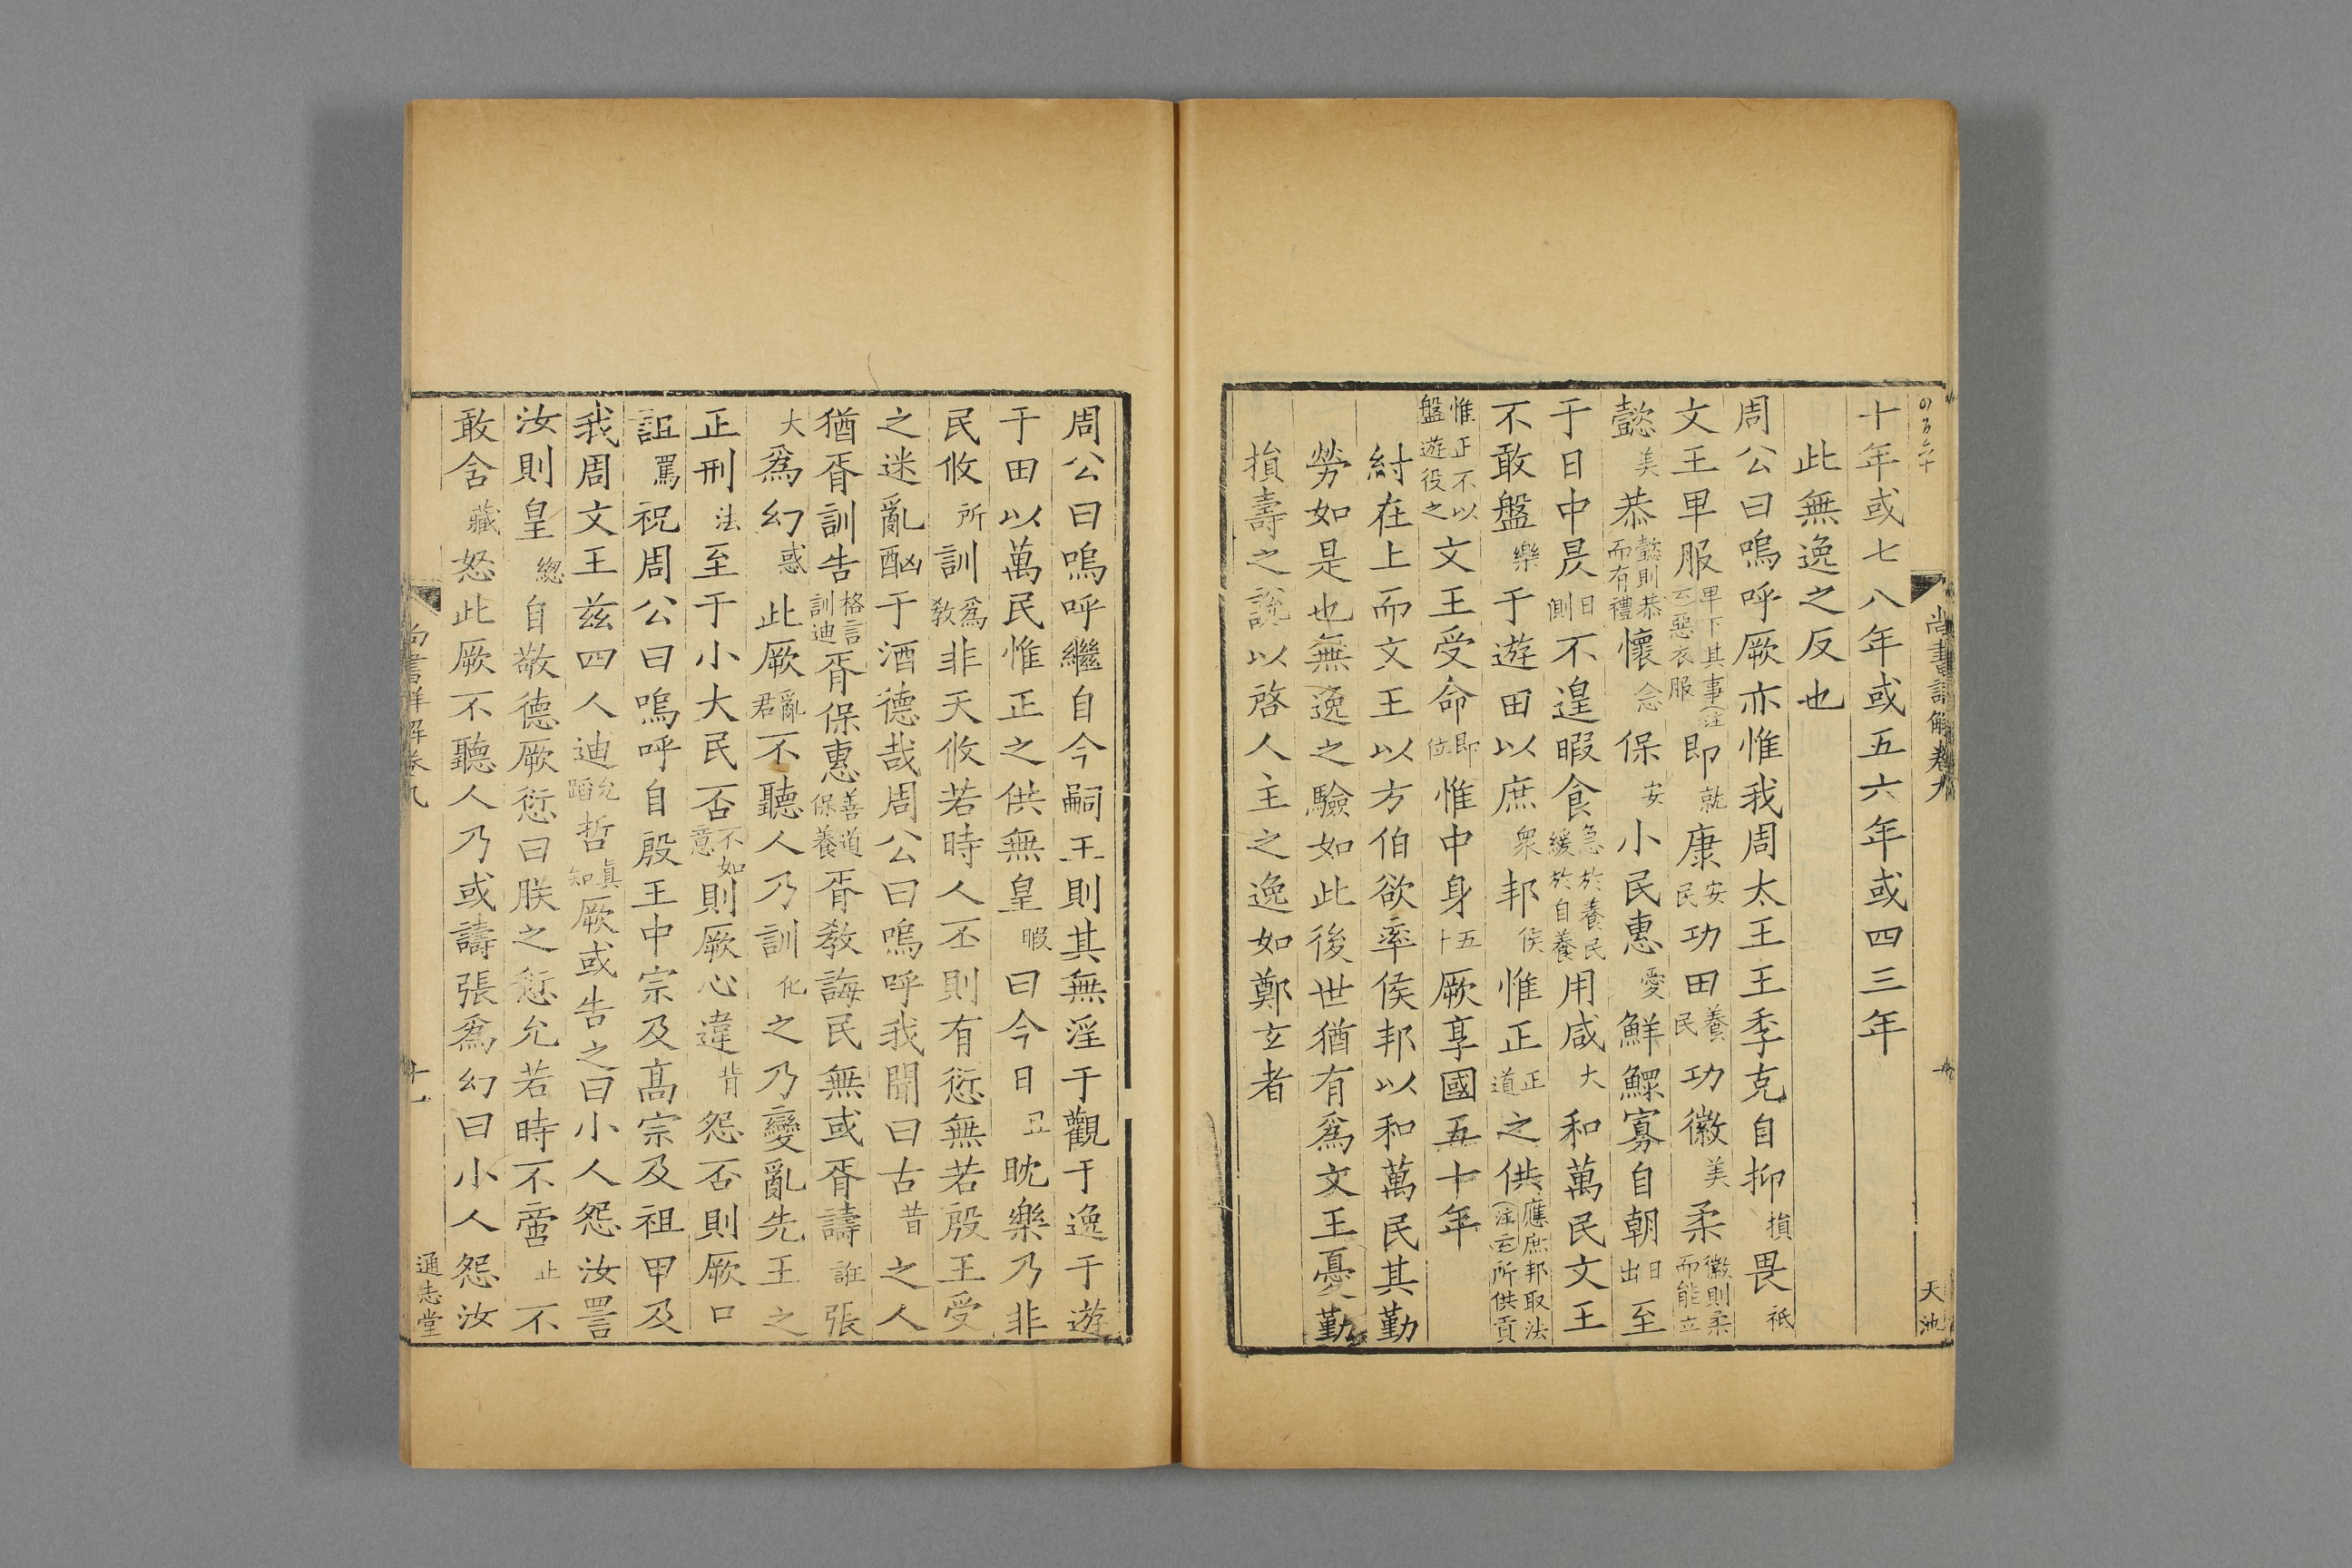 十年或七八年或五六年或四三年
此無逸之反也
周公曰嗚呼厥亦惟我周太王王季克自抑損畏祗
文王卑服卑下其事注云惡衣服即就康安民功田養民功徽美柔徽則柔而能立
懿美恭懿則恭而有禮懷念保安小民惠愛鮮鰥寡自朝日出至
于日中昃日側不遑暇食急於養民緩於自養用咸大和萬民文王
不敢盤樂于遊田以庶衆邦侯惟正正道之供應庶邦取法注云所供貢
惟正不以盤遊役之文王受命即位惟中身五十厥享國五十年
紂在上而文王以方伯欲率侯邦以和萬民其勤
勞如是也無逸之驗如此後世猶有爲文王憂勤
損壽之說以啓人主之逸如鄭玄者
尚書詳解卷九
天池
周公曰嗚呼繼自今嗣王則其無淫于觀于逸于遊
于田以萬民惟正之供無皇暇曰今日丑耽樂乃非
民攸所訓爲教非天攸若時人丕則有愆無若殷王受
之迷亂酗于酒德哉周公曰嗚呼我聞曰古昔之人
猶胥訓告格言訓迪胥保惠善道保養胥教誨民無或胥譸誑張
大爲幻惑此厥亂君不聽人乃訓化之乃變亂先王之
正刑法至于小大民否不如意則厥心違背怨否則厥口
詛罵祝周公曰嗚呼自殷王中宗及高宗及祖甲及
我周文王茲四人迪允蹈哲眞知厥或告之曰小人怨汝詈
汝則皇緫自敬德厥愆曰朕之愆允若時不啻止不
敢含藏怒此厥不聽人乃或譸張爲幻曰小人怨汝
尚書詳解卷九
十一
通志堂